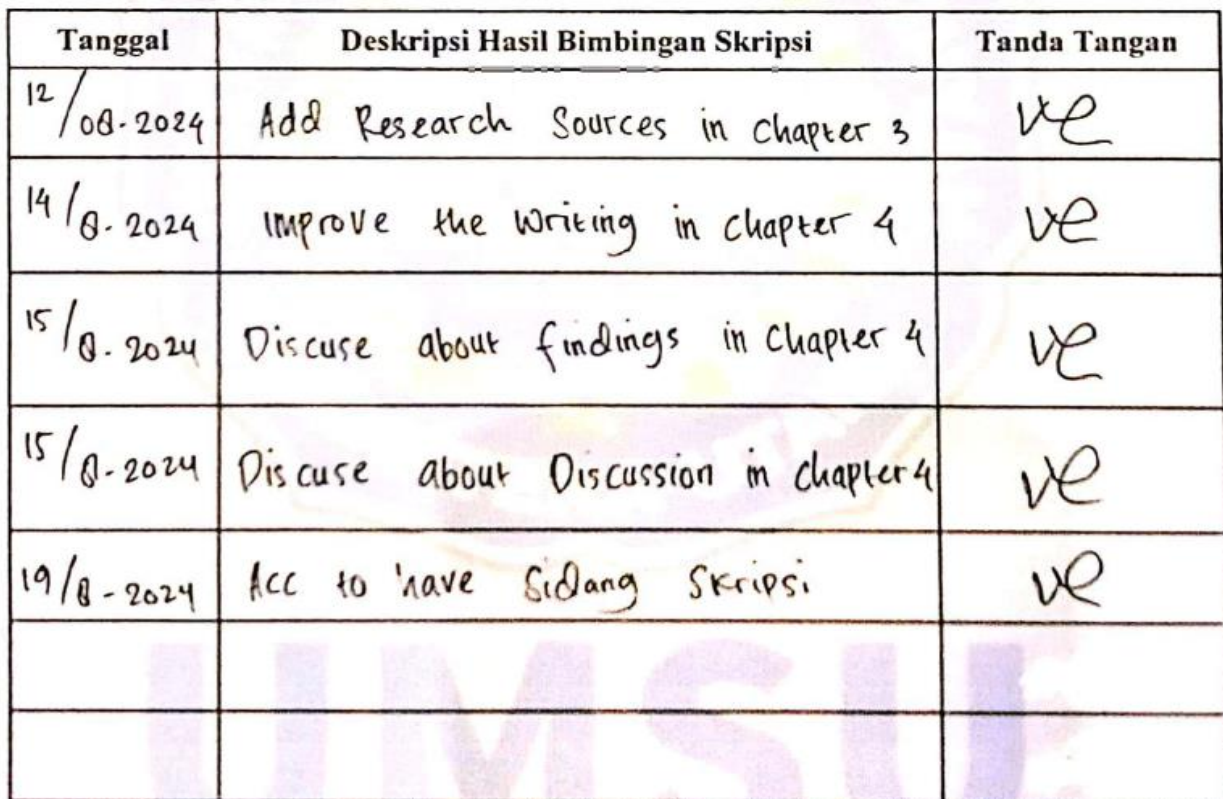 Tanggal Deskripsi Hasil Bimbingan Skripsi Tanda Tangan
12/08-2024 Add Research Sources in chapter 3
14/8-2024 Improve the Writing in chapter 4
15/8-2024 Discuse about findings in Chapter 4
15/8-2024 Discuse about Discussion in chapter 4
19/8-2024 Acc to have Sidang Skripsi
UMSU